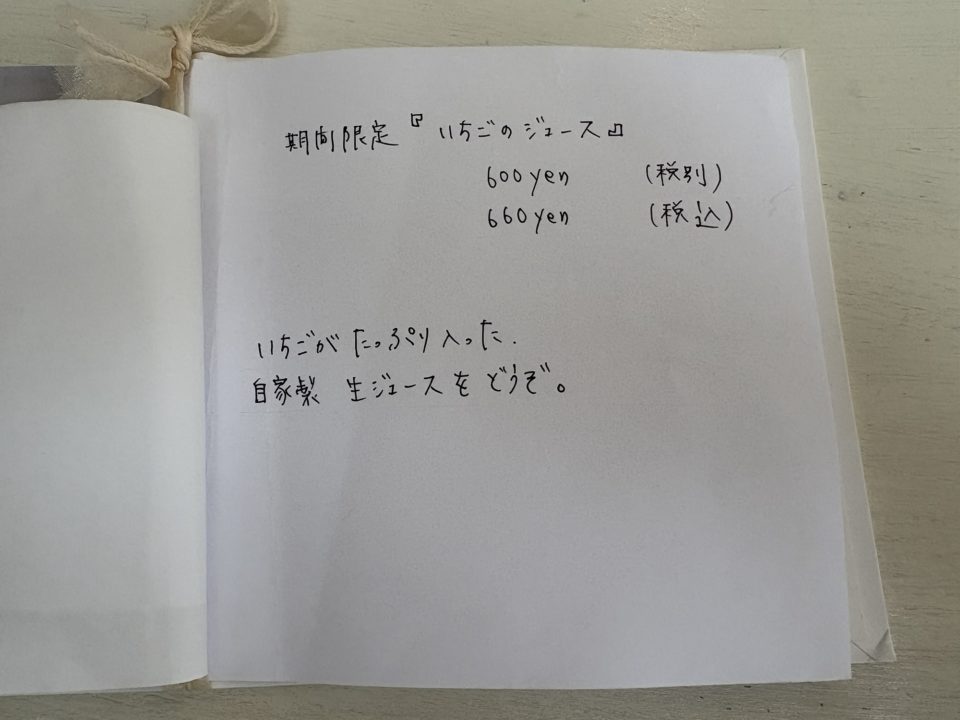 期間限定『いちごのジュース』
600yen （税別）
660yen （税込）
いちごがたっぷり入った.
自家製 生ジュースをどうぞ。